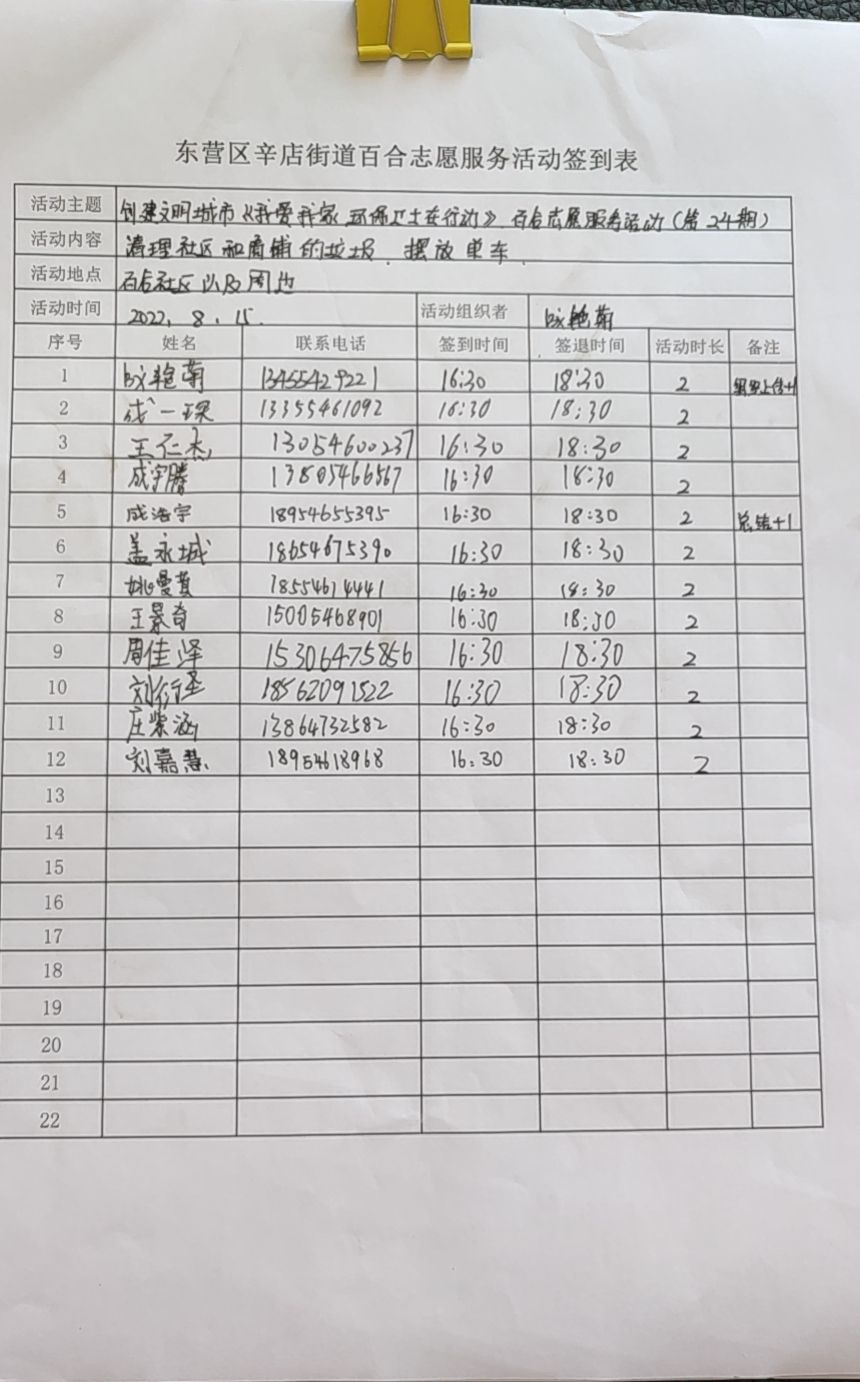 东营区辛店街道百合志愿服务活动签到表
活动主题 创建文明城市《我爱我家 环保卫士在行动》百合志愿服务活动（第24期）
活动内容 清理社区和商铺的垃圾、摆放单车
活动地点 百合社区以及周边
活动时间 2022.8.15. 活动组织者 艳菊
序号 姓名 联系电话 签到时间 签退时间 活动时长 备注
1 艳菊 13455429221 16:30 18:30 2
2 成一琛 13355461092 16:30 18:30 2
3 王仁杰 13054600237 16:30 18:30 2
4 成宇腾 13805466567 16:30 18:30 2
5 成浩宇 18954655395 16:30 18:30 2 总结+1
6 盖永城 18654675390 16:30 18:30 2
7 姚曼 18554614441 16:30 18:30 2
8 王景奇 15005468901 16:30 18:30 2
9 周佳泽 15306475856 16:30 18:30 2
10 刘衍圣 18562091522 16:30 18:30 2
11 庄紫涵 13864732582 16:30 18:30 2
12 刘嘉慧 18954618968 16:30 18:30 2
13
14
15
16
17
18
19
20
21
22